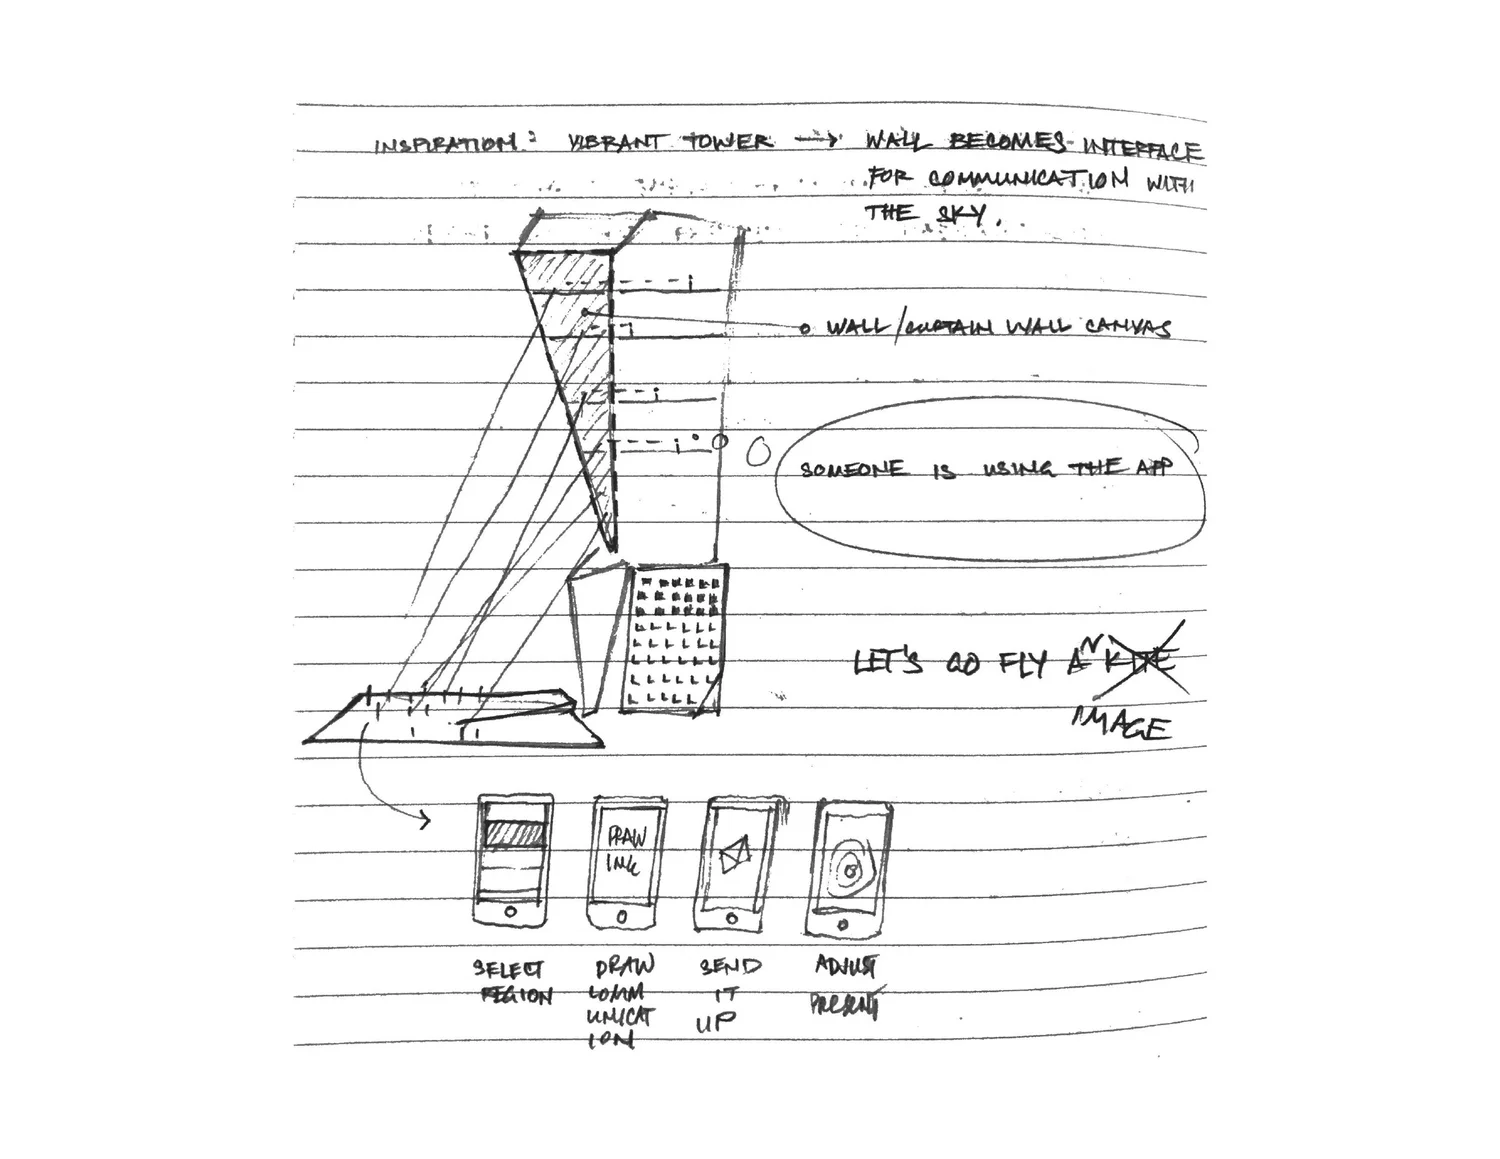 INSPIRATION: VIBRANT TOWER → WALL BECOMES INTERFACE
FOR COMMUNICATION WITH
THE SKY.
WALL/CURTAIN WALL CANVAS
SOMEONE IS USING THE APP
LET'S GO FLY AN KITE
IMAGE
DRAW
ING
SELECT
REGION
DRAW
COMM
UNICAT
ION
SEND
IT
UP
ADJUST
PRESENT